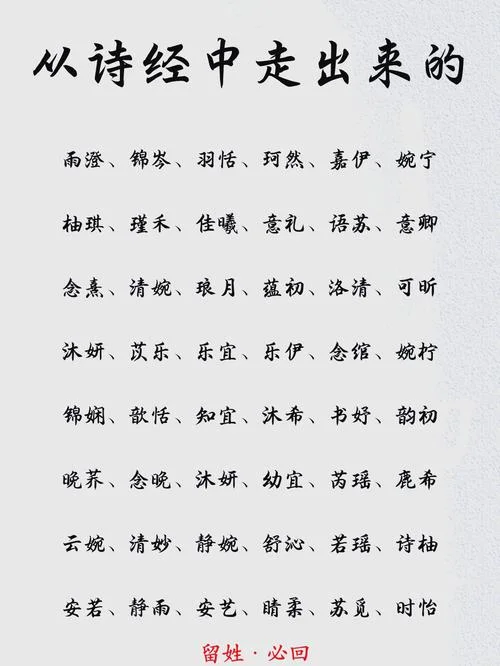 从诗经中走出来的
雨澄、锦岑、羽恬、珂然、嘉伊、婉宁
柚琪、瑾禾、佳曦、意礼、语苏、意卿
念熹、清婉、琅月、蕴初、洛清、可昕
沐妍、苡乐、乐宜、乐伊、念绾、婉柠
锦娴、歆恬、知宜、沐希、书妤、韵初
晚荞、念晚、沐妍、幼宜、芮瑶、鹿希
云婉、清妙、静婉、舒沁、若瑶、诗柚
安若、静雨、安艺、晴柔、苏觅、时怡
留姓·必回